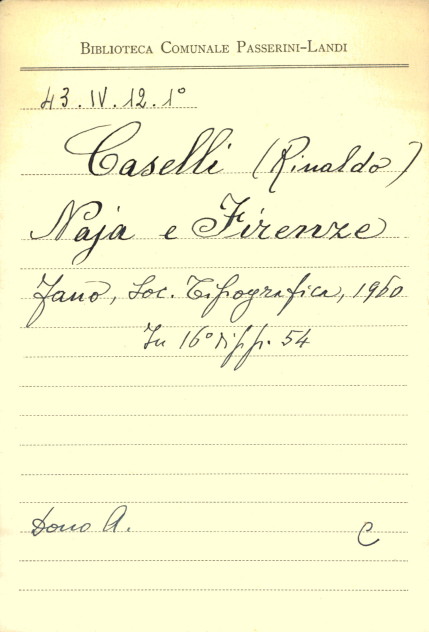 BIBLIOTECA COMUNALE PASSERINI-LANDI
43.IV.12.1°
Caselli (Rinaldo)
Naja e Firenze
Fano, Soc. Tipografica, 1960
In 16° di pp. 54
Dono A.
C